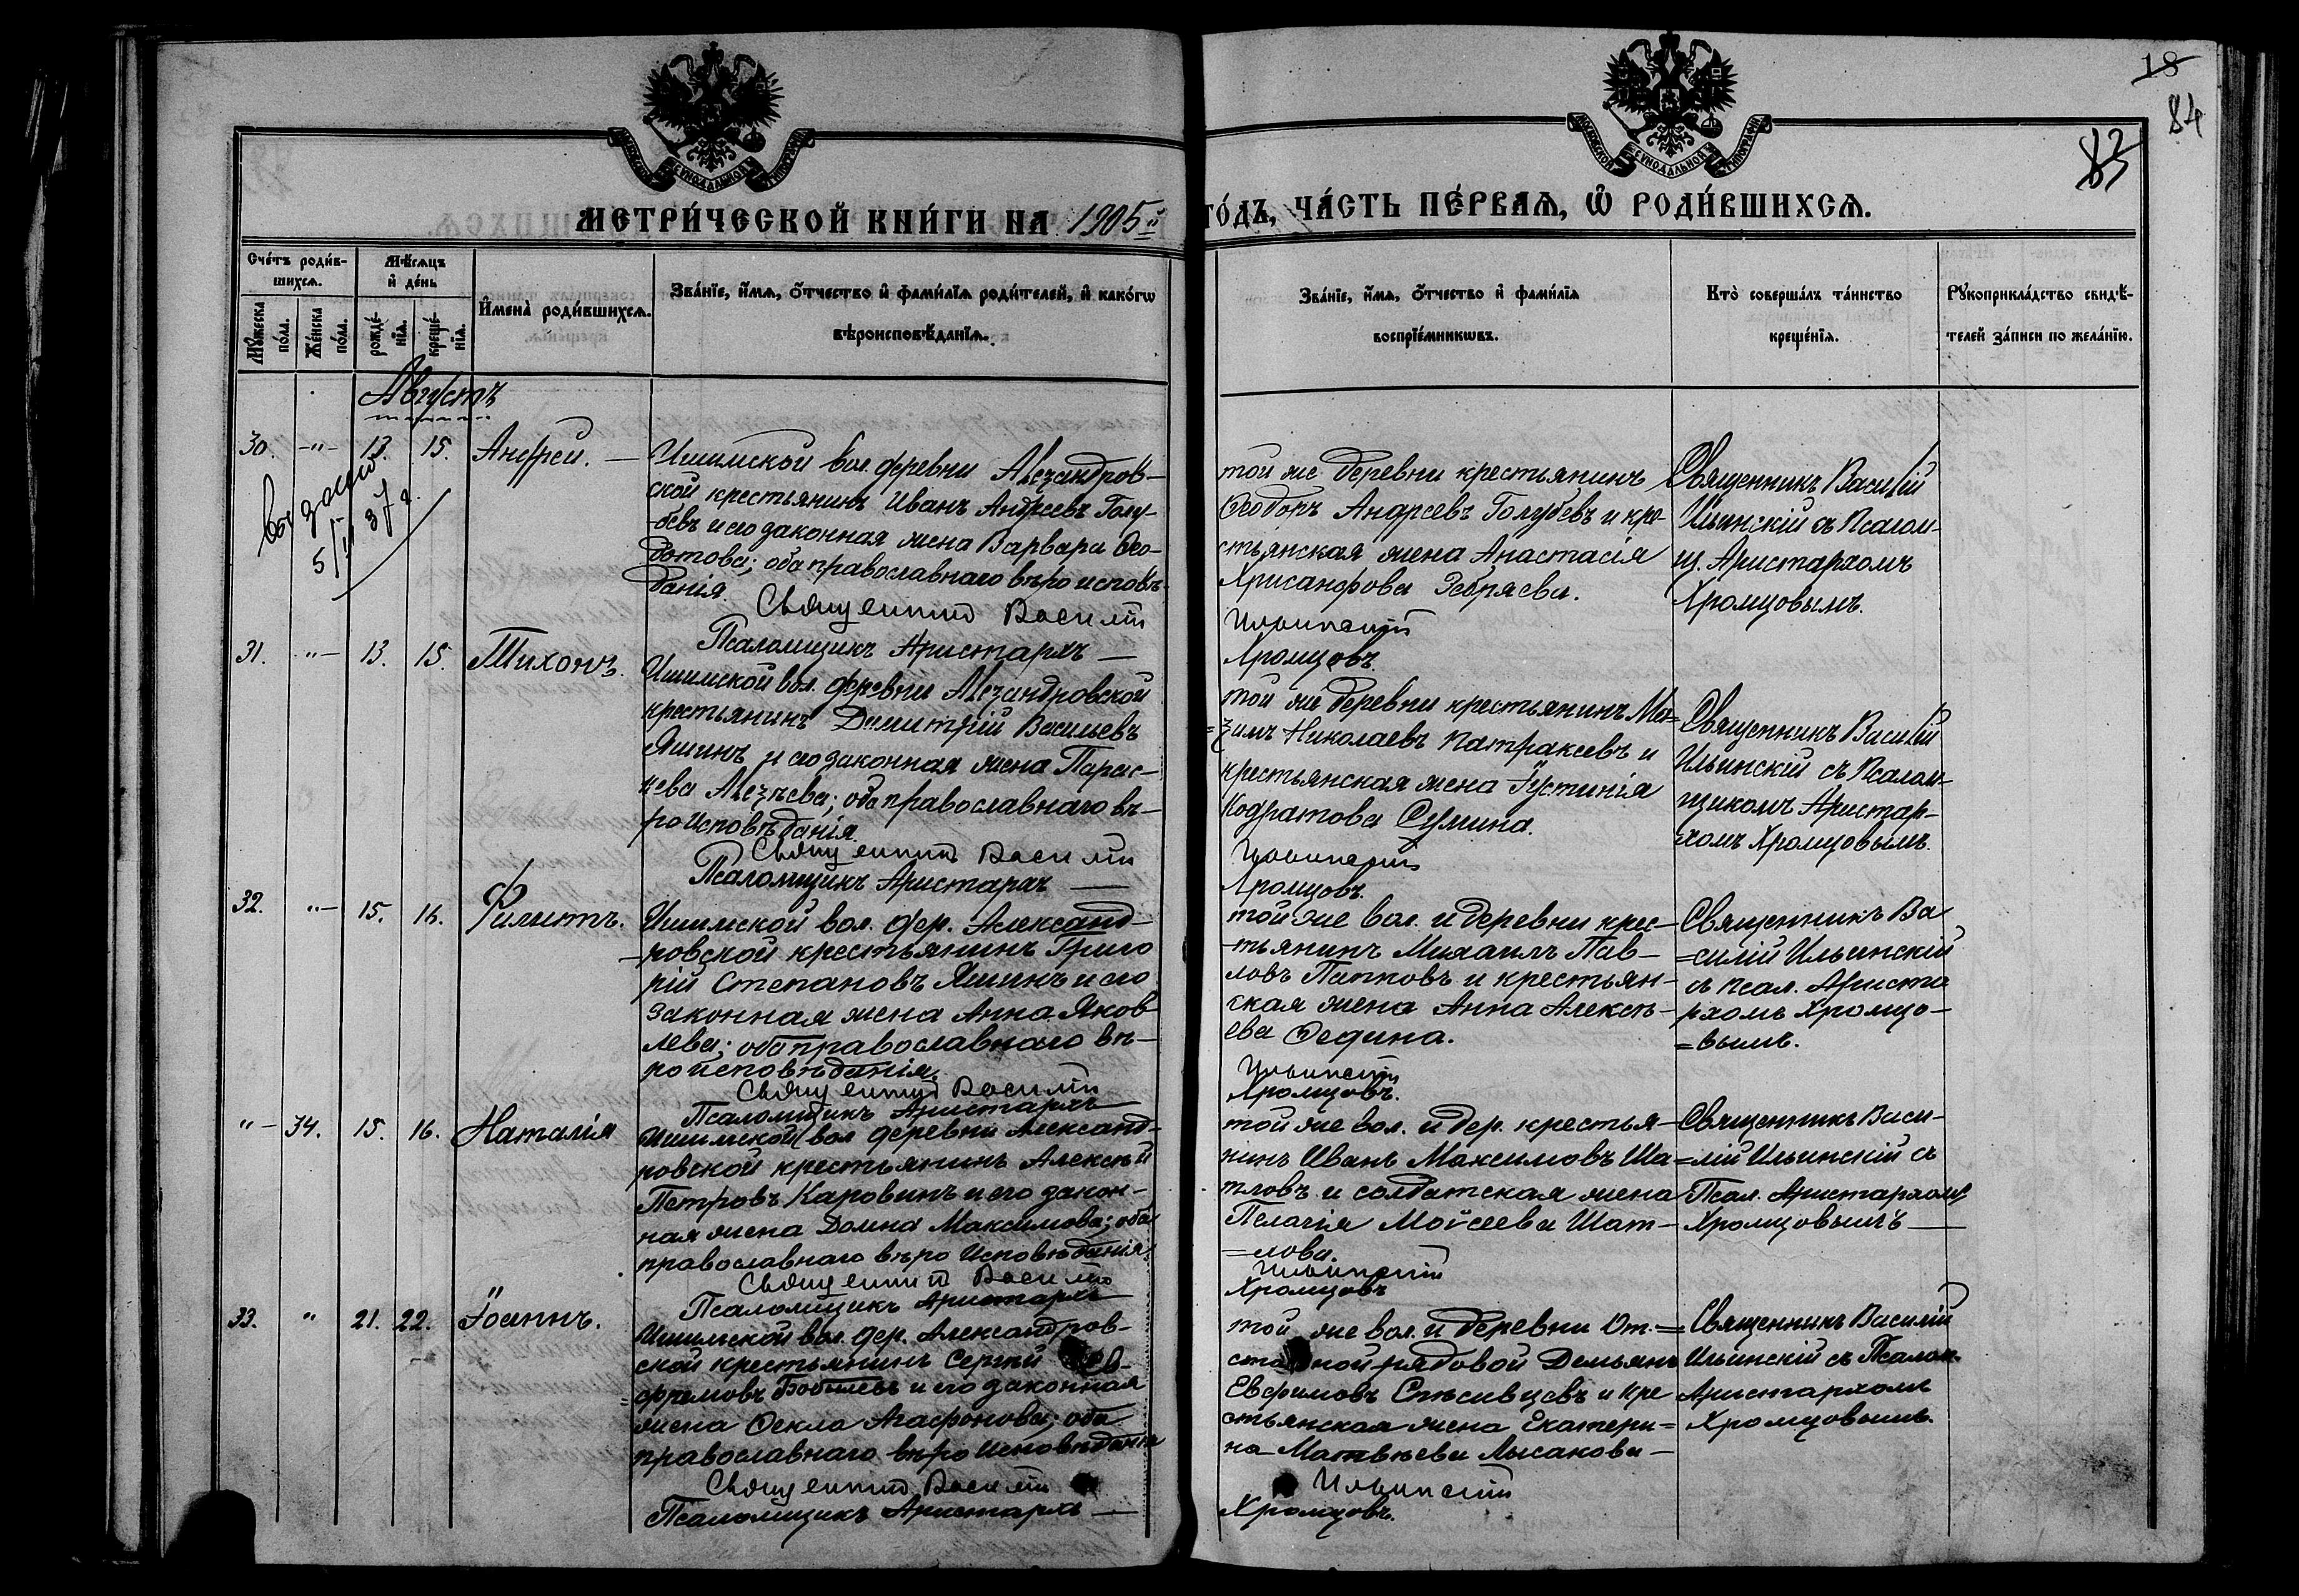 18
84
83
МОСКОВСКОЙ СѴНОДАЛЬНОЙ ТИПОГРАФІИ
МОСКОВСКОЙ СѴНОДАЛЬНОЙ ТИПОГРАФІИ
МЕТРИ́ЧЕСКОЙ КНИ́ГИ НА 1905й
ГО́ДЪ, ЧА́СТЬ ПЕ́РВАѦ, Ѡ҆ РОДИ́ВШИХСѦ.
Сче́тъ роди́в-
шихсѧ.
Мѣ́сѧцъ
и҆ де́нь
Мꙋ́жеска
по́ла.
Же́нска
по́ла.
рожде́-
нїѧ.
креще́-
нїѧ.
И҆мена̀ роди́вшихсѧ.
Зва́нїе, и҆́мѧ, ѻ҆́тчество и҆ фами́лїѧ роди́телей, и҆ како́гѡ
вѣроисповѣ́данїѧ.
Зва́нїе, и҆́мѧ, ѻ҆́тчество и҆ фами́лїѧ
воспрїе́мникѡвъ.
Кто̀ соверша́лъ та́инство
креще́нїѧ.
Рꙋкоприкла́дство свидѣ́-
телей за́писи по жела́нїю.
Августъ
30. -"- 13. 15. Андрей. —
5/II 37 г.
Ишимской вол. деревни Александров-
ской крестьянинъ Иванъ Андреевъ Голу-
бевъ и его законная жена Варвара Ѳео-
дотова; оба православнаго вѣроисповѣ-
данія.
Священникъ Василій
Псаломщикъ Аристархъ —
той же деревни крестьянинъ
Ѳеодоръ Андреевъ Голубевъ и кре-
стьянская жена Анастасія
Хрисанфова Зебряева.
Ильинскій
Хромцовъ.
Священникъ Василій
Ильинскій съ Псалом-
щ. Аристархомъ
Хромцовымъ.
31. "- 13. 15. Тихонъ.
Ишимской вол. деревни Александровской
крестьянинъ Димитрій Васильевъ
Яшинъ и его законная жена Парас-
кева Алексѣева; оба православнаго вѣ-
роисповѣданія
Священникъ Василій
Псаломщикъ Аристархъ —
той же деревни крестьянинъ Мак-
=симъ Николаевъ Патракеевъ и
крестьянская жена Іустинія
Кодратова Сумина.
Ильинскій
Хромцовъ.
Священникъ Василій
Ильинскій съ Псалом-
щикомъ Аристар-
хомъ Хромцовымъ.
32. "- 15. 16. Филиппъ.
Ишимской вол. дер. Александ-
-ровской крестьянинъ Григо
рій Степановъ Яшинъ и его
законная жена Анна Яков
лева; оба православнаго вѣ-
роисповѣданія.
Священникъ Василій
Псаломщикъ Аристархъ
той же вол. и деревни крес-
-тьянинъ Михаилъ Пав-
ловъ Папковъ и крестьян-
ская жена Анна Алексѣ-
ева Седина.
Ильинскій
Хромцовъ.
Священникъ Ва
=силій Ильинскій
съ псал. Ариста
рхомъ Хромцо-
=вымъ.
"- 34. 15. 16. Наталія
Ишимской вол деревни Александ-
ровской крестьянинъ Алексѣй
Петровъ Каровинъ и его закон-
ная жена Домна Максимова; оба
православнаго вѣроисповѣданія
Священникъ Василій
Псаломщикъ Аристархъ
той же вол. и дер. крестья-
нинъ Иванъ Максимовъ Ша-
тловъ и солдатская жена
Пелагія Моѵсеева Шат-
=лова.
Ильинскій
Хромцовъ
Священникъ Васи-
=лій Ильинскій съ
Псал. Аристархомъ
Хромцовымъ —
33. " 21. 22. Іоаннъ.
Ишимской вол. дер. Александров-
ской крестьянинъ Сергѣй Ев-
=фрамовъ Бобылевъ и его законная
жена Ѳекла Агафонова; оба
православнаго вѣроисповѣданія
Священникъ Василій
Псаломщикъ Аристархъ —
той же вол. и деревни От-
ставной рядовой Демьянъ
Евфимовъ Спѣсивцевъ и кре
стьянская жена Екатери=
на Матвѣева Лысакова —
Ильинскій
Хромцовъ.
Священникъ Василій
Ильинскій съ Псалом.
Аристархомъ
Хромцовымъ.